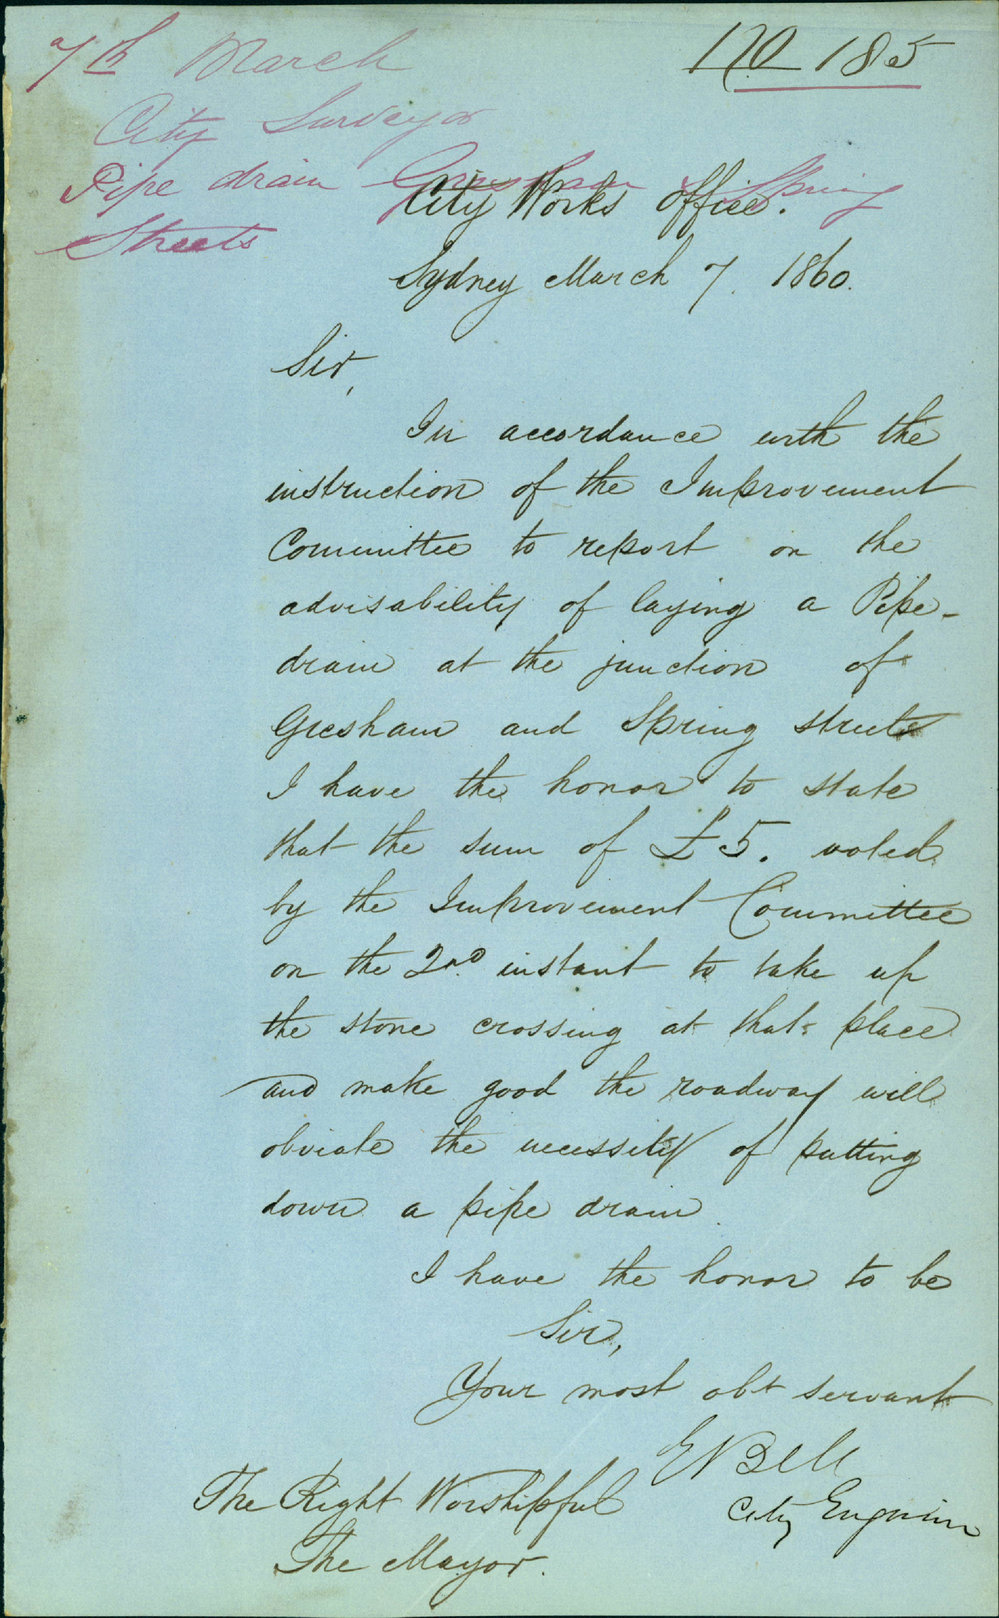 7th March
No 185
City Surveyor
Pipe drain Gresham & Spring
Streets
City Works Office.
Sydney March 7. 1860.
Sir,
In accordance with the
instruction of the Improvement
Committee to report on the
advisability of laying a Pipe-
drain at the junction of
Gresham and Spring streets
I have the honor to state
that the sum of £5. voted
by the Improvement Committee
on the 2nd. instant to take up
the stone crossing at that place
and make good the roadway will
obviate the necessity of putting
down a pipe drain.
I have the honor to be
Sir,
Your most obt servant
E Bell
City Engineer
The Right Worshipful
The Mayor.